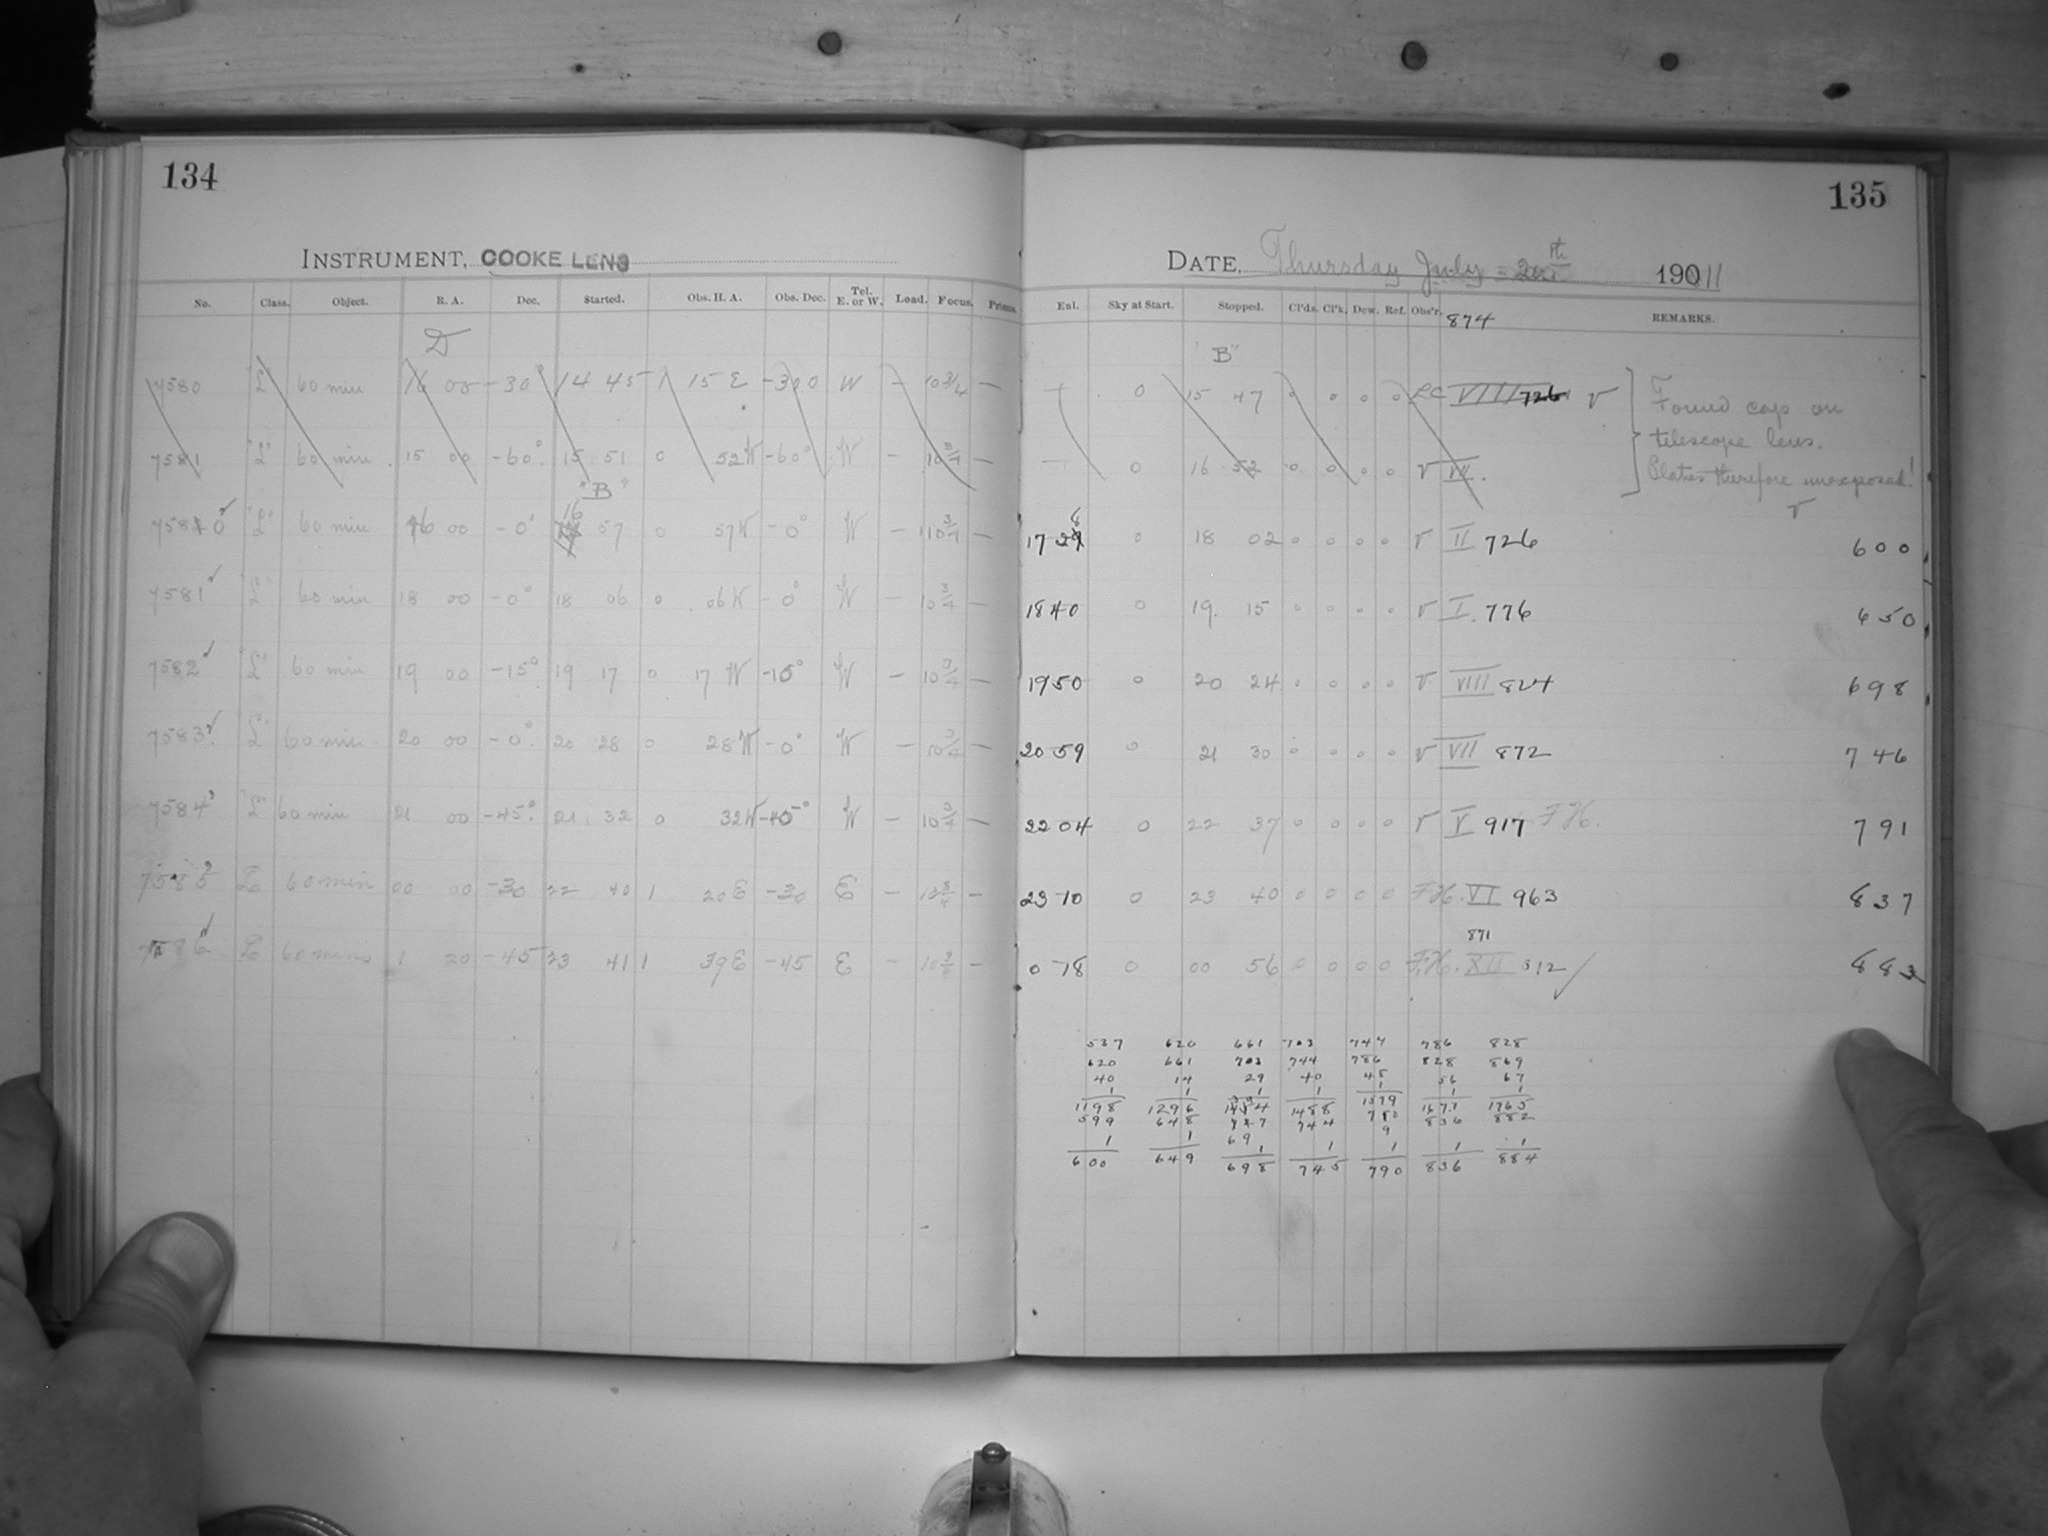 134
INSTRUMENT, COOKE LENS
No. Class. Object. R. A. Dec. Started. Obs. H. A. Obs. Dec. Tel. E. or W. Load. Focus. Prisms.
D
7580 "L" 60 min 16 00 -30° 14 45 15 E -30 0 W — 10 3/4 —
7581 "L" 60 min. 15 00 -60° 15 51 0 52 W -60° W — 10 3/4 —
"B"
7580 "L" 60 min 16 00 -0° 16 57 0 57 W -0° W — 10 3/4 —
7581 "L" 60 min 18 00 -0° 18 06 0 06 W -0° W — 10 3/4 —
7582 "L" 60 min 19 00 -15° 19 17 0 17 W -15° W — 10 3/4 —
7583 "L" 60 min. 20 00 -0° 20 28 0 28 W -0° W — 10 3/4 —
7584 "L" 60 min 21 00 -45° 21 32 0 32 W -45° W — 10 3/4 —
7585 L 60 min 00 00 -30 22 40 1 20 E -30 E — 10 3/4 —
7586 L 60 mins 1 20 -45 23 41 1 39 E -45 E — 10 3/4
135
DATE, Thursday July 20th 1911
Enl. Sky at Start. Stopped. Cl'ds. Cl'k. Dew. Ref. Obs'r. REMARKS.
874
"B"
0 15 47 0 0 0 0 LC VIII 726 v Found cap on
telescope lens.
— 0 16 52 0 0 0 0 v VII. Plates therefore unexposed!
v
1728 0 18 02 0 0 0 0 v II 726 600
1840 0 19. 15 0 0 0 0 v I. 776 650
1950 0 20 24 0 0 0 0 v VIII 824 698
2059 0 21 30 0 0 0 0 v VII 872 746
2204 0 22 37 0 0 0 0 v V 917 F.H. 791
2310 0 23 40 0 0 0 0 F.H. VI 963 837
871
0 18 0 00 56 0 0 0 0 F.H. XII 912 883
537 620 661 703 744 786 828
620 661 703 744 786 828 869
40 14 29 40 48 56 67
1 1 1 1 1 1 1
1198 1296 1394 1488 1579 1671 1765
599 648 697 744 780 836 882
69 9
1 1 1 1 1 1 1
600 649 698 745 790 836 884